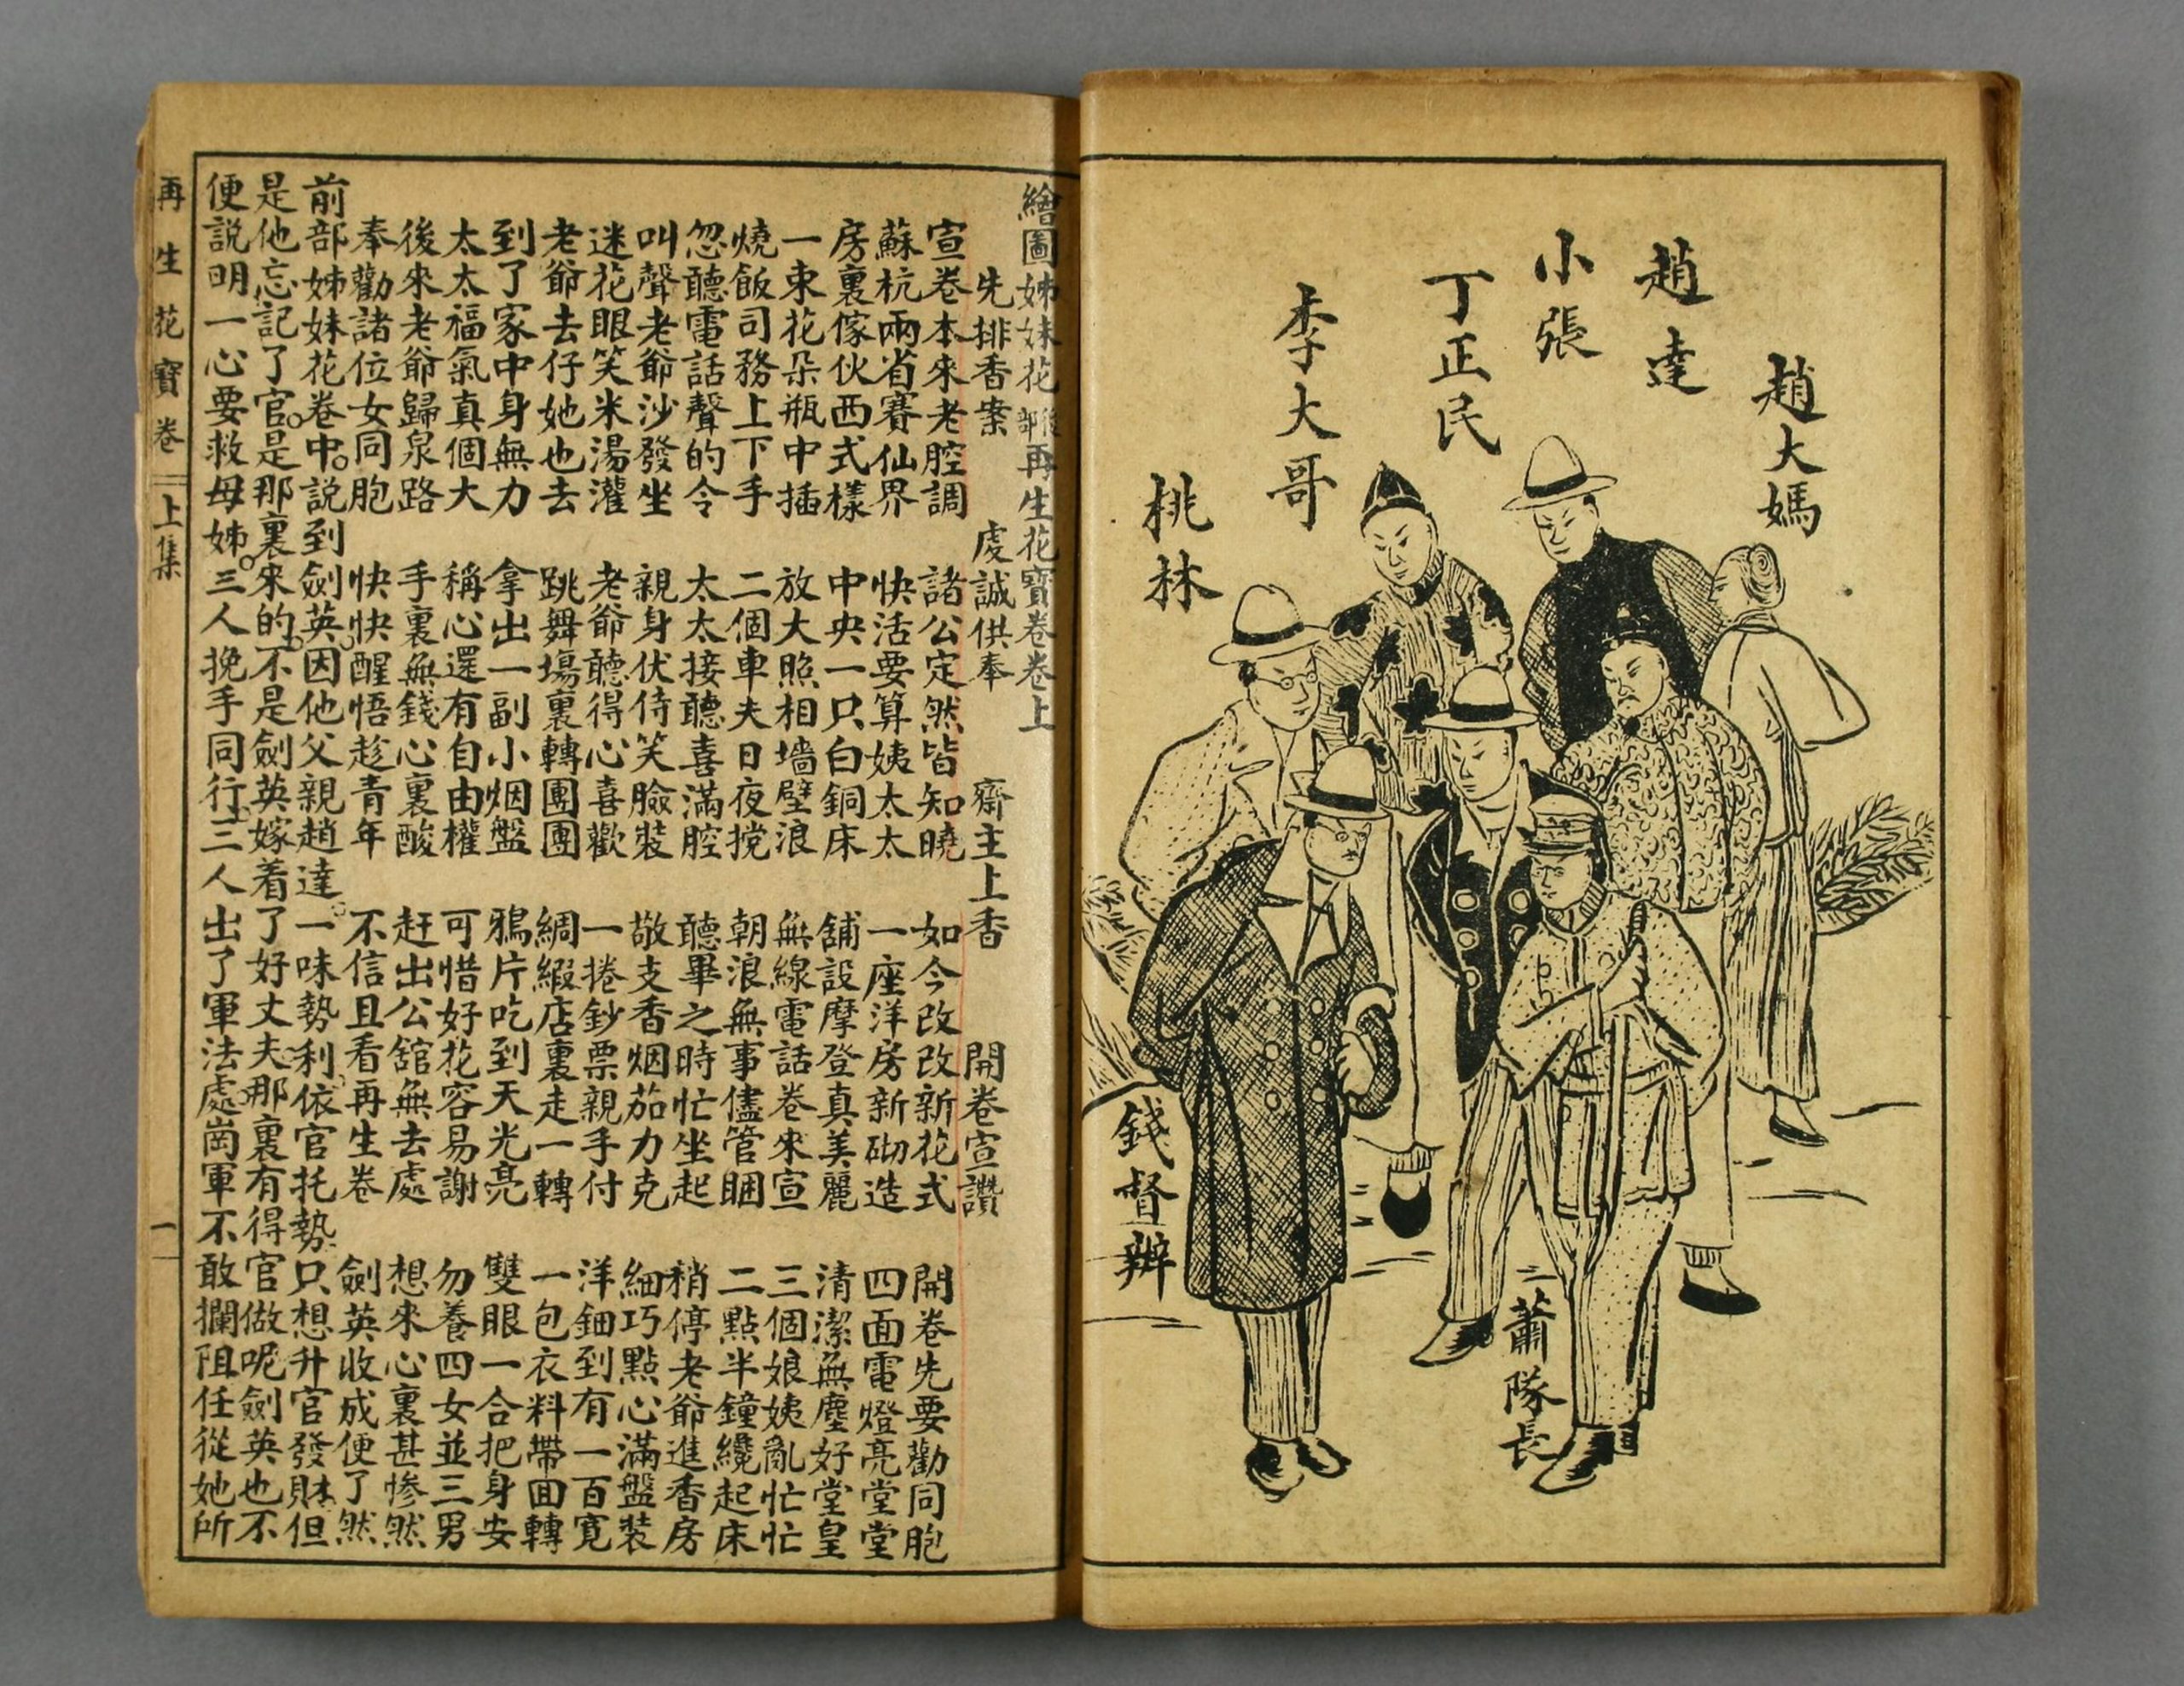 趙大媽
趙達
小張
丁正民
李大哥
桃林
錢督辦
蕭隊長
繪圖姊妹花後部再生花寶卷卷上
先排香案 虔誠供奉 齋主上香 開卷宣讚
宣卷本來老腔調 諸公定然皆知曉 如今改改新花式 開卷先要勸同胞
蘇杭兩省賽仙界 快活要算姨太太 一座洋房新砌造 四面電燈亮堂堂
房裏傢伙西式樣 中央一只白銅床 舖設摩登真美麗 清潔無塵好堂皇
一束花朵瓶中插 放大照相墻壁浪 無線電話卷來宣 三個娘姨亂忙忙
燒飯司務上下手 二個車夫日夜 朝浪無事儘管睏 二點半鐘纔起床
忽聽電話聲的令 太太接聽喜滿腔 聽畢之時忙坐起 稍停老爺進香房
叫聲老爺沙發坐 親身伏侍笑臉裝 敬支香烟茄力克 細巧點心滿盤裝
迷花眼笑米湯灌 老爺聽得心喜歡 一捲鈔票親手付 洋鈿到有一百寬
老爺去仔她也去 跳舞場裏轉團團 綢緞店裏走一轉 一包衣料帶回轉
到了家中身無力 拿出一副小烟盤 鴉片吃到天光亮 雙眼一合把身安
太太福氣真個大 稱心還有自由權 可惜好花容易謝 勿養四女並三男
後來老爺歸泉路 手裏無錢心裏酸 赶出公舘無去處 想來心裏甚慘然
奉勸諸位女同胞 快快醒悟趁青年 不信且看再生卷 劍英收成便了然
前部姊妹花卷中。説到劍英。因他父親趙達。一味勢利。依官托勢。只想升官發財。但
是他忘記了官。是那裏來的。不是劍英嫁着了好丈夫。那裏有得官做呢劍英也不
便説明一心要救母姊。三人挽手同行。三人出了軍法處。崗軍不敢攔阻任從她所
再生花寶卷 上集 一